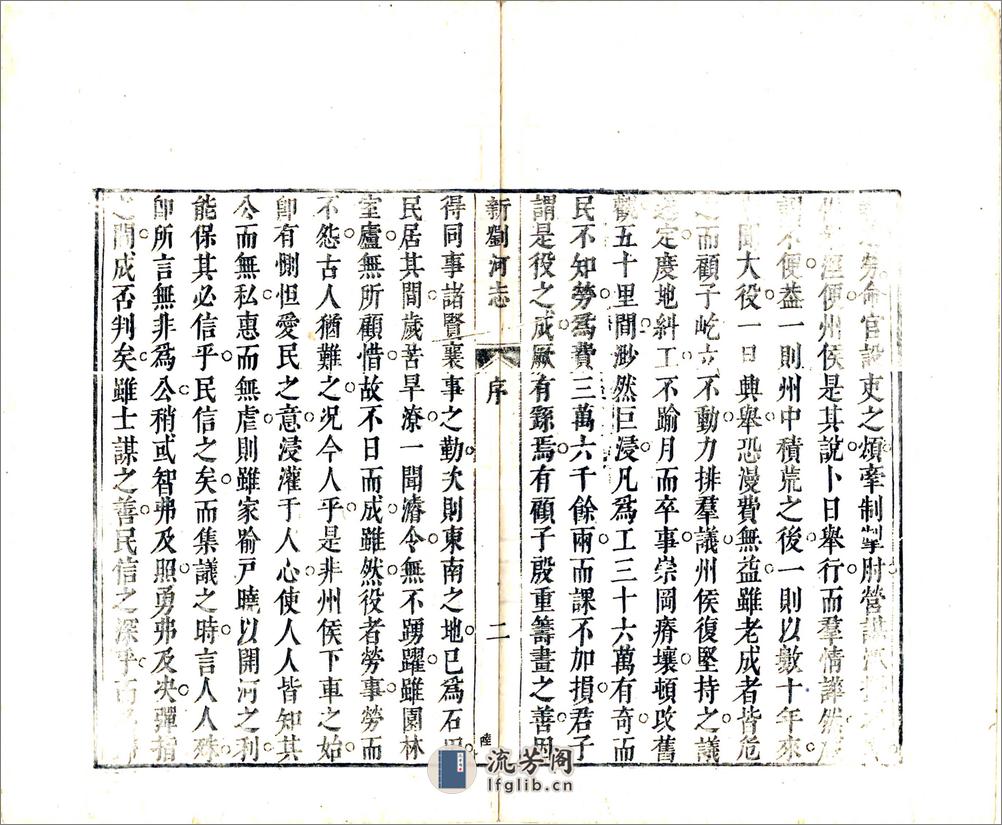 勞命官設吏之煩牽制掣肘營謀
經便州侯是其說卜日舉行而羣情譁然
不便葢一則州中積荒之後一則以數十年來
聞大役一日興舉恐漫費無益雖老成者皆危
之而顧子屹立不動力排羣議州侯復堅持之議
定度地糾工不踰月而卒事崇岡瘠壤頓改舊
觀五十里間渺然巨浸凡爲工三十六萬有奇而
民不知勞爲費三萬六千餘兩而課不加損君子
謂是役之成厥有繇焉有顧子殷重籌畫之善因
新劉河志
序
二
得同事諸賢襄事之勤矣則東南之地已爲石田
民居其間歲苦旱潦一聞濬令無不踴躍雖園林
室廬無所顧惜故不日而成雖然役者勞事勞而
不怨古人猶難之况今人乎是非州侯下車之始
卽有惻怛愛民之意浸灌于人心使人人皆知其
公而無私惠而無虐則雖家喻戸曉以開河之利
能保其必信乎民信之矣而集議之時言人人殊
卽所言無非爲公稍或智弗及照勇弗及决彈指
之間成否判矣雖士謀之善民信之深乎
流芳阁
lfglib.cn